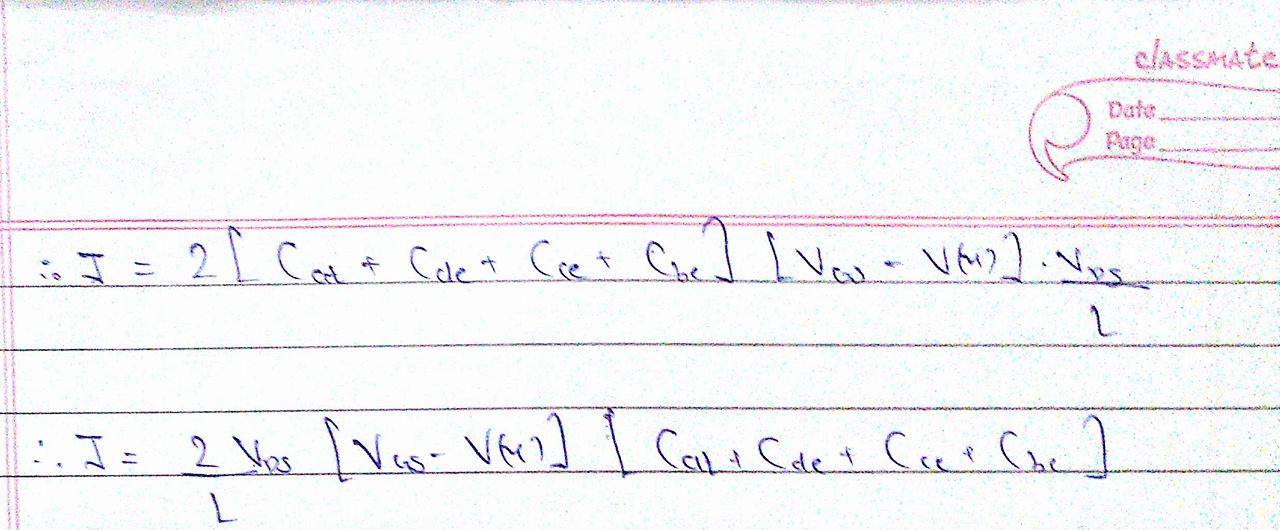 classmate
Date
Page
∴ J = 2 [ Cox + Cde + Cce + Cbe ] [ VGS - V(x) ] . VDS / L
∴ J = 2 VDS / L [ VGS - V(x) ] [ Cox + Cde + Cce + Cbe ]